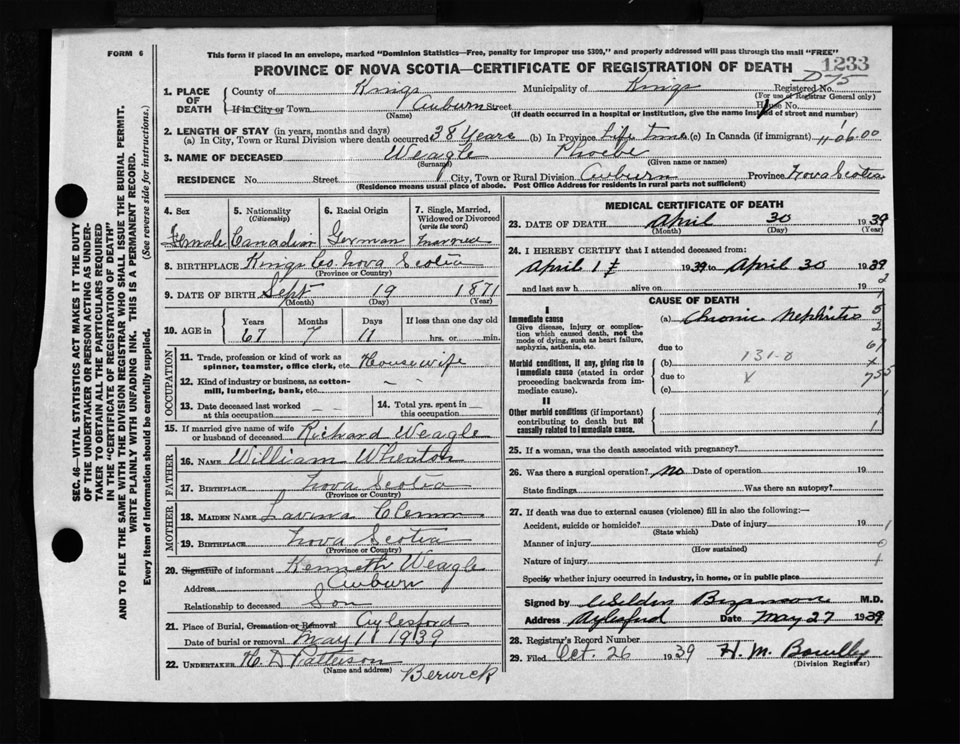 FORM 6
This form if placed in an envelope, marked "Dominion Statistics—Free, penalty for improper use $300," and properly addressed will pass through the mail "FREE"
1233
PROVINCE OF NOVA SCOTIA—CERTIFICATE OF REGISTRATION OF DEATH
D75
1. PLACE OF DEATH County of Kings Municipality of Kings Registered No.
(For use of Registrar General only)
If in City or Town Auburn Street House No.
(Name) (If death occurred in a hospital or institution, give the name instead of street and number)
2. LENGTH OF STAY (in years, months and days)
(a) In City, Town or Rural Division where death occurred 28 Years (b) In Province Life time (c) In Canada (if immigrant)
11-06.00
3. NAME OF DECEASED Weagle Phoebe
(Surname) (Given name or names)
RESIDENCE No. Street City, Town or Rural Division Auburn Province Nova Scotia
(Residence means usual place of abode. Post Office Address for residents in rural parts not sufficient)
4. Sex Female
5. Nationality (Citizenship) Canadian
6. Racial Origin German
7. Single, Married, Widowed or Divorced (write the word) Married
8. BIRTHPLACE Kings Co. Nova Scotia
(Province or Country)
9. DATE OF BIRTH Sept 19 1871
(Month) (Day) (Year)
10. AGE in Years 67 Months 7 Days 11 If less than one day old hrs. or min.
OCCUPATION
11. Trade, profession or kind of work as spinner, teamster, office clerk, etc. Housewife
12. Kind of industry or business, as cotton-mill, lumbering, bank, etc. — —
13. Date deceased last worked at this occupation — —
14. Total yrs. spent in this occupation — —
15. If married give name of wife or husband of deceased Richard Weagle
FATHER
16. NAME William Wheaton
17. BIRTHPLACE Nova Scotia
(Province or Country)
MOTHER
18. MAIDEN NAME Lavina
19. BIRTHPLACE Nova Scotia
(Province or Country)
20. Signature of informant Kenneth Weagle
Address Auburn
Relationship to deceased Son
21. Place of Burial, Cremation or Removal Aylesford
Date of burial or removal May 1 1939
22. UNDERTAKER H. D Patterson
(Name and address) Berwick
MEDICAL CERTIFICATE OF DEATH
23. DATE OF DEATH April 30 1939
(Month) (Day) (Year)
24. I HEREBY CERTIFY that I attended deceased from:
April 1st 1939 to April 30 1939
and last saw h alive on 19
CAUSE OF DEATH
I
Immediate cause
Give disease, injury or complication which caused death, not the mode of dying, such as heart failure, asphyxia, asthenia, etc.
(a) Chronic Nephritis
due to
Morbid conditions, if any, giving rise to Immediate cause (stated in order proceeding backwards from immediate cause).
(b) 131-8
due to x
(c)
II
Other morbid conditions (if important) contributing to death but not causally related to immediate cause.
25. If a woman, was the death associated with pregnancy?
26. Was there a surgical operation? no Date of operation 19
State findings Was there an autopsy?
27. If death was due to external causes (violence) fill in also the following:—
Accident, suicide or homicide? Date of injury 19
(State which)
Manner of injury
(How sustained)
Nature of injury
Specify whether injury occurred in industry, in home, or in public place
Signed by Bezanson M.D.
Address Aylesford Date May 27 1939
28. Registrar's Record Number
29. Filed Oct. 26 1939 H. M.
(Division Registrar)
SEC. 46—VITAL STATISTICS ACT MAKES IT THE DUTY
OF THE UNDERTAKER OR PERSON ACTING AS UNDER-
TAKER TO OBTAIN ALL THE PARTICULARS REQUIRED
IN THE "CERTIFICATE OF REGISTRATION OF DEATH"
AND TO FILE THE SAME WITH THE DIVISION REGISTRAR WHO SHALL ISSUE THE BURIAL PERMIT.
WRITE PLAINLY WITH UNFADING INK. THIS IS A PERMANENT RECORD.
Every item of information should be carefully supplied. (See reverse side for instructions.)